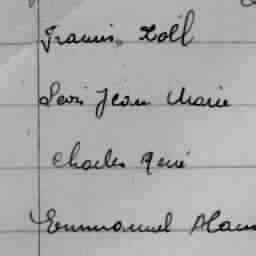 Francis Zoël
Louis Jean Marie
Charles René
Emmanuel Alain